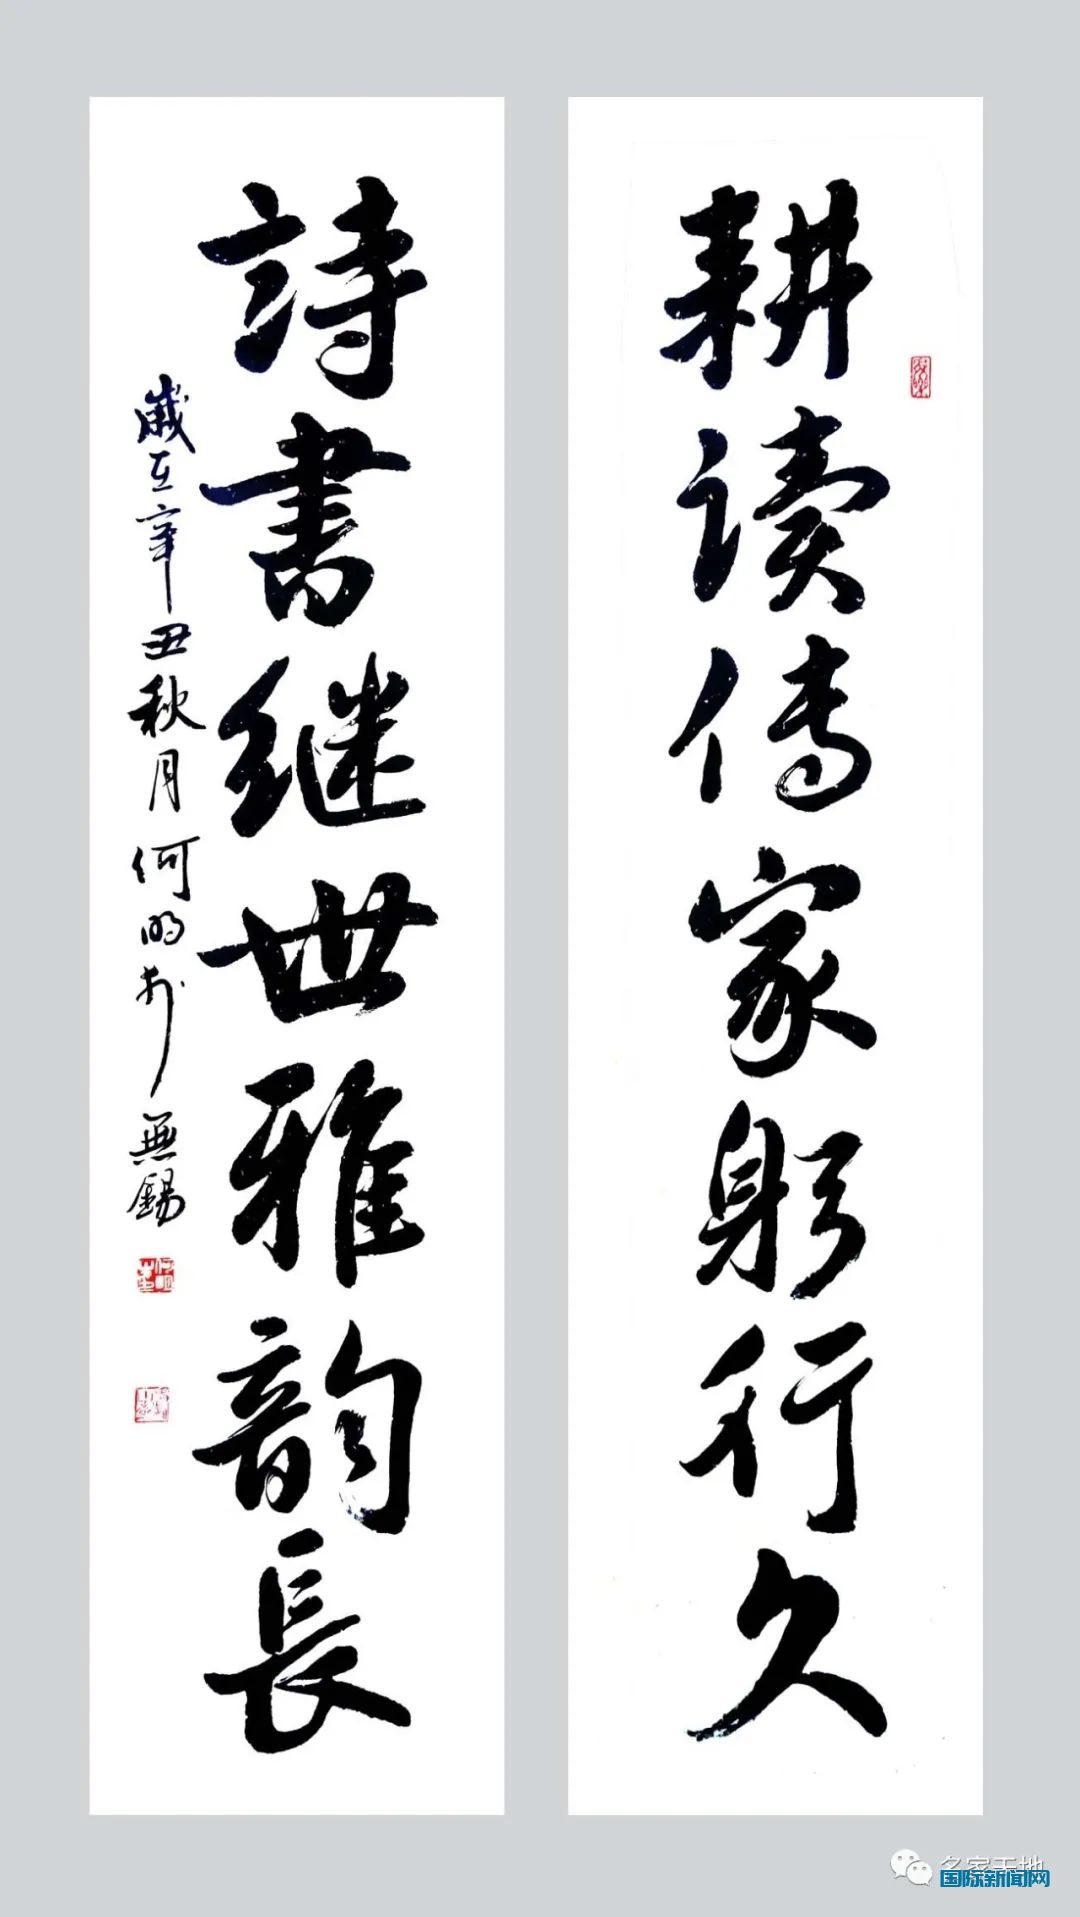 耕读传家躬行久
詩書继世雅韵長
歲在辛丑秋月何明於無錫
名家天地
国际新闻网